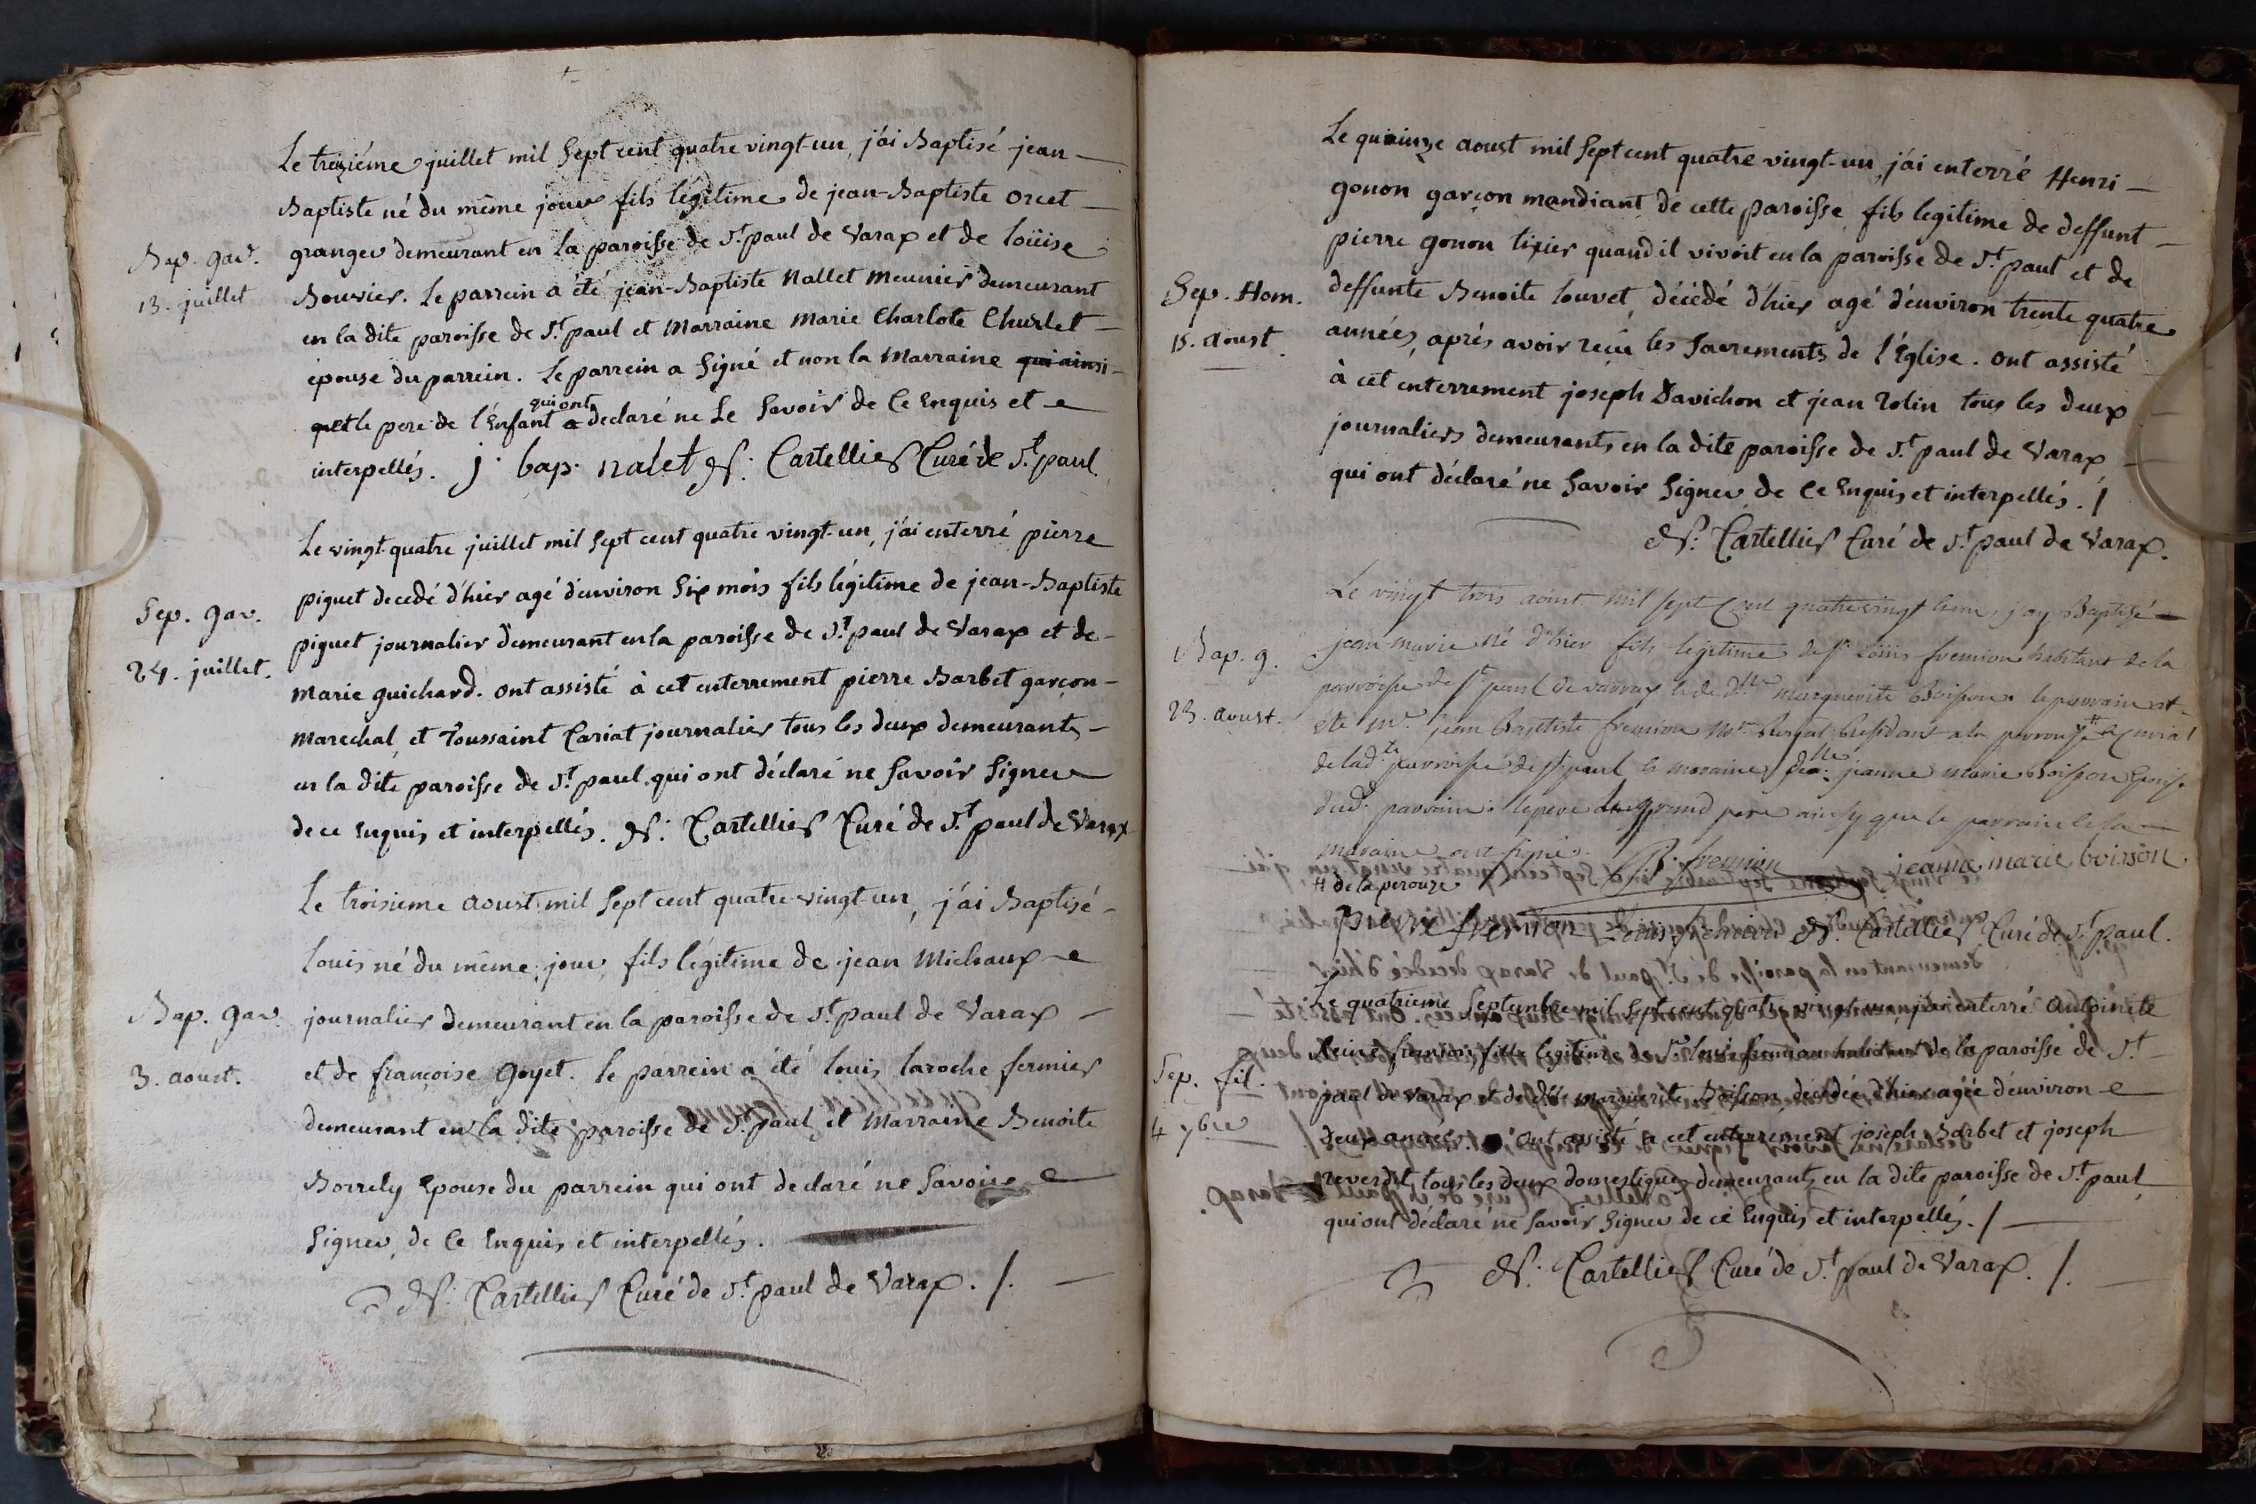 Le treiziéme juillet mil Sept cent quatre vingt-un, j'ai Baptisé jean
Baptiste né du même jour fils légitime de jean-Baptiste orcet
granger demeurant en la paroisse de St. paul de Varax et de loüise
Bouvier. Le parrein a été jean-Baptiste nallet meunier demeurant
en la dite paroisse de St. paul et Marraine Marie Charlote Churlet
épouse du parrein. Le parrein a Signé et non la Marraine qui ainsi
que le pere de l'Enfant qui ont declaré ne Le Savoir de Ce Enquis et
interpellés. j. bap. nalet N. Cartellier Curé de St. paul
Bap. gar.
13. juillet
Le vingt-quatre juillet mil Sept cent quatre vingt-un, j'ai enterré pierre
piquet decedé d'hier agé d'environ Six mois fils légitime de jean-Baptiste
piquet journalier demeurant en la paroisse de St. paul de Varax et de
marie guichard. ont assisté à cet enterrement pierre Barbet garçon
marechal et Toussaint Cariat journalier tous les deux demeurants
en la dite paroisse de St. paul qui ont déclaré ne Savoir Signer
de ce Enquis et interpellés. N. Cartellier Curé de St. paul de Varax
Sep. gar.
24. juillet.
Le troisieme aoust mil Sept cent quatre-vingt-un, j'ai Baptisé
Louis né du même jour, fils légitime de jean Michaux
journalier demeurant en la paroisse de St. paul de Varax
et de françoise Goyet. le parrein a été louis laroche fermier
demeurant en la dite paroisse de St. paul et Marraine Benoite
Borrely Epouse du parrein qui ont declaré ne Savoir
Signer, de Ce Enquis et interpellés.
N. Cartellier Curé de St. paul de Varax. /.
Bap. gar.
3. aoust.
Le quinze aoust mil Sept cent quatre vingt-un, j'ai enterré Henri
gonon garçon mandiant de cette paroisse, fils legitime de deffunt
pierre gonon tixier quand il vivoit en la paroisse de St. paul et de
deffunte Benoite louvet, décédé d'hier agé d'environ trente quatre
années, aprés avoir reçu les Sacrements de l'Église. ont assisté
à cet enterrement joseph Davichon et jean Rolin tous les deux
journaliers demeurants en la dite paroisse de St. paul de Varax
qui ont déclaré ne Savoir Signer de Ce Enquis et interpellés. /
N. Cartellier Curé de St. paul de Varax.
Sep. Hom.
15. aoust
Le vingt trois aoust mil sept Cent quatrevingt j'ay Baptisé
jean marie né d'hier fils legitime de Sr. Loüis fremion habitant de la
parroisse de St paul de varax et de dlle marguerite Boisson. le parrain at
été Mr. jean Baptiste fremion
de lad.te parroisse de St paul et maraine dlle. jeanne marie Boisson Epouse
dud. parrain. le pere grand pere ainsy que le parrain et la
maraine ont signé. B. fremion jeanne marie boisson
# de la perouze
pierre fremion Louis fremion N. Cartellier Curé de St. paul.
Bap. g.
23. aoust.
Le quatrieme Septembre mil Sept cent quatre vingt-un, j'ai enterré antoinete
fremion fille legitime de Sr. loüis fremion habitant de la paroisse de St.
paul de Varax et de dlle marguerite Boisson, decedée d'hier agée d'environ
deux années. ont assisté a cet enterrement joseph Barbet et joseph
reverdit tous les deux domestiques demeurants en la dite paroisse de St. paul
qui ont déclaré ne Savoir Signer de ce Enquis et interpellés. /
N. Cartellier Curé de St. paul de Varax. /.
Sep. fil.
4 7bre